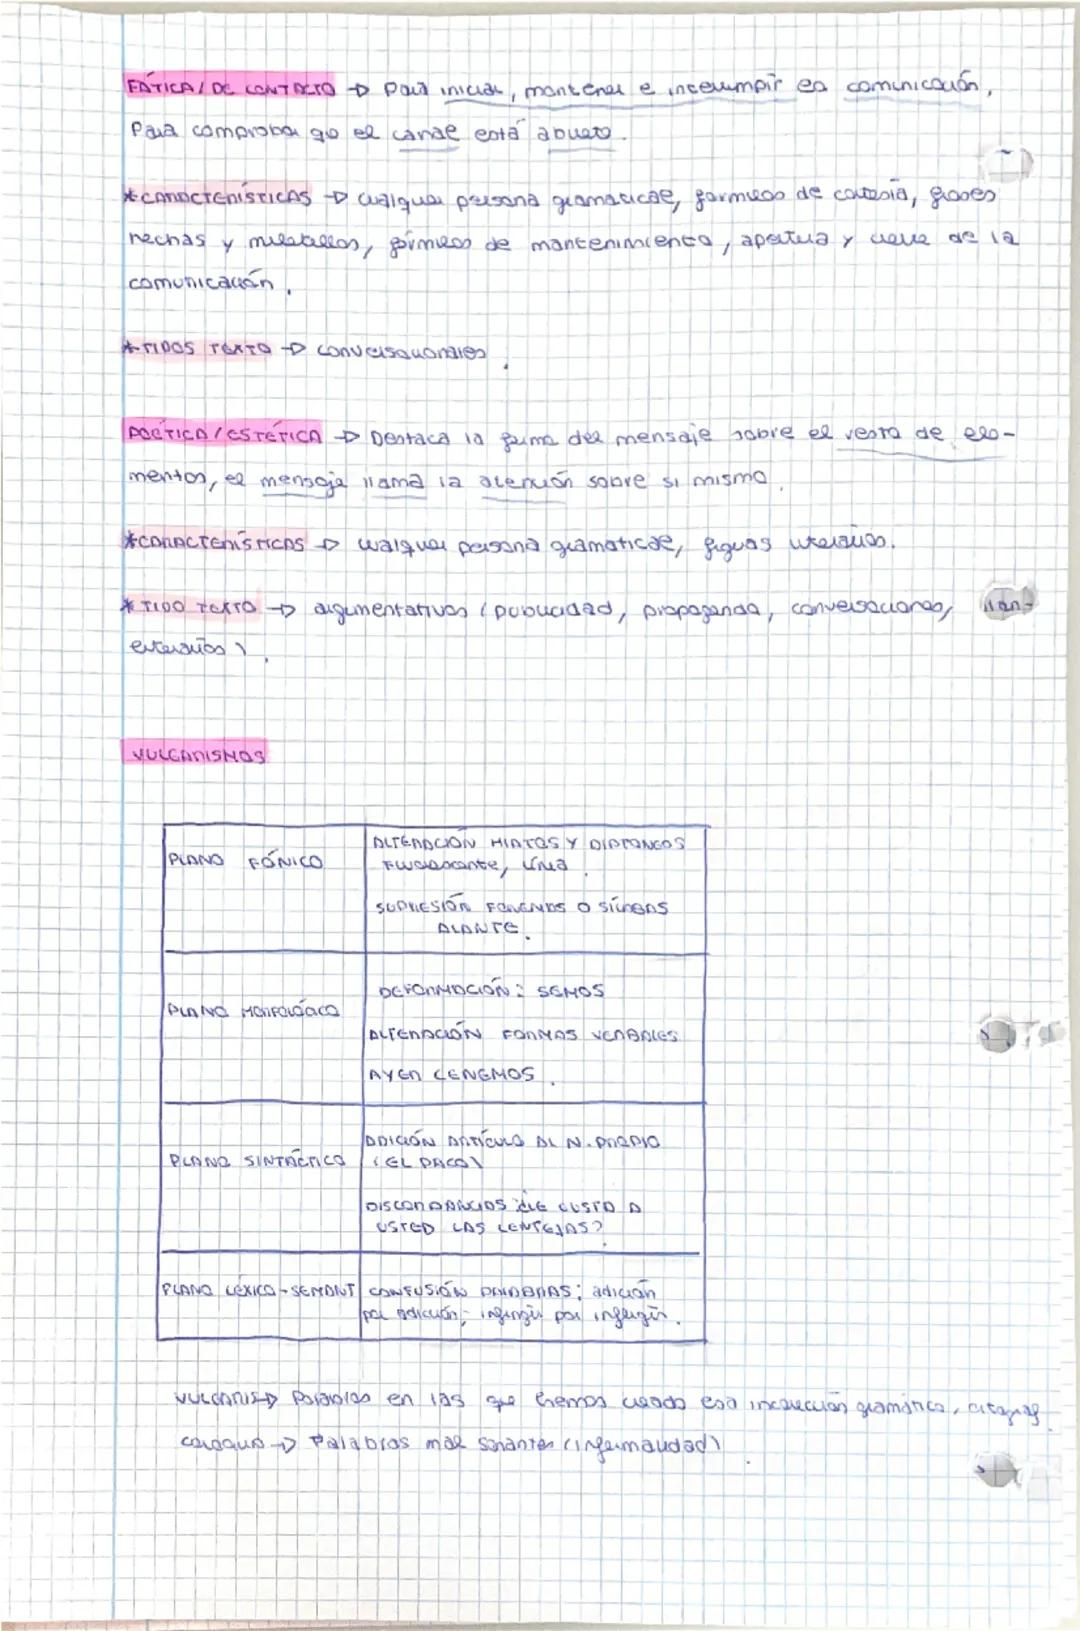 FÁTICA / DE CONTACTO → Para iniciar, mantener e interrumpir la comunicación,
Para comprobar qe el canal está abierto.
*CARACTERÍSTICAS → cualquier persona gramatical, fórmulas de cortesía, frases
hechas y muletillas, fórmulas de mantenimiento, apertura y cierre de la
comunicación.
*TIPOS TEXTO → conversacionales.
POÉTICA / ESTÉTICA → Destaca la forma del mensaje sobre el resto de ele-
mentos, el mensaje llama la atención sobre si mismo.
*CARACTERÍSTICAS → cualquier persona gramatical, figuras literarias.
*TIPO TEXTO → argumentativos (publicidad, propaganda, conversacionales,
literarios).
VULGARISMOS
PLANO FÓNICO
ALTERACIÓN HIATOS Y DIPTONGOS
, línia.
SUPRESIÓN FONEMAS O SÍLABAS
ALANTE.
PLANO MORFOLÓGICO
DEFORMACIÓN: SEMOS
ALTERACIÓN FORMAS VERBALES
AYER CENEMOS.
PLANO SINTÁCTICO
ADICIÓN ARTÍCULO AL N. PROPIO
(EL PACO)
DISCORDANCIAS ¿LE GUSTA A
USTED LAS LENTEJAS?
PLANO LÉXICO-SEMANT
CONFUSIÓN PALABRAS: adición
por adicción; infringir por infligir.
VULGARIS → Palabras en las que hemos usado esa incorrección gramática, ortograf.
coloquio → Palabras mal sonantes (informalidad).